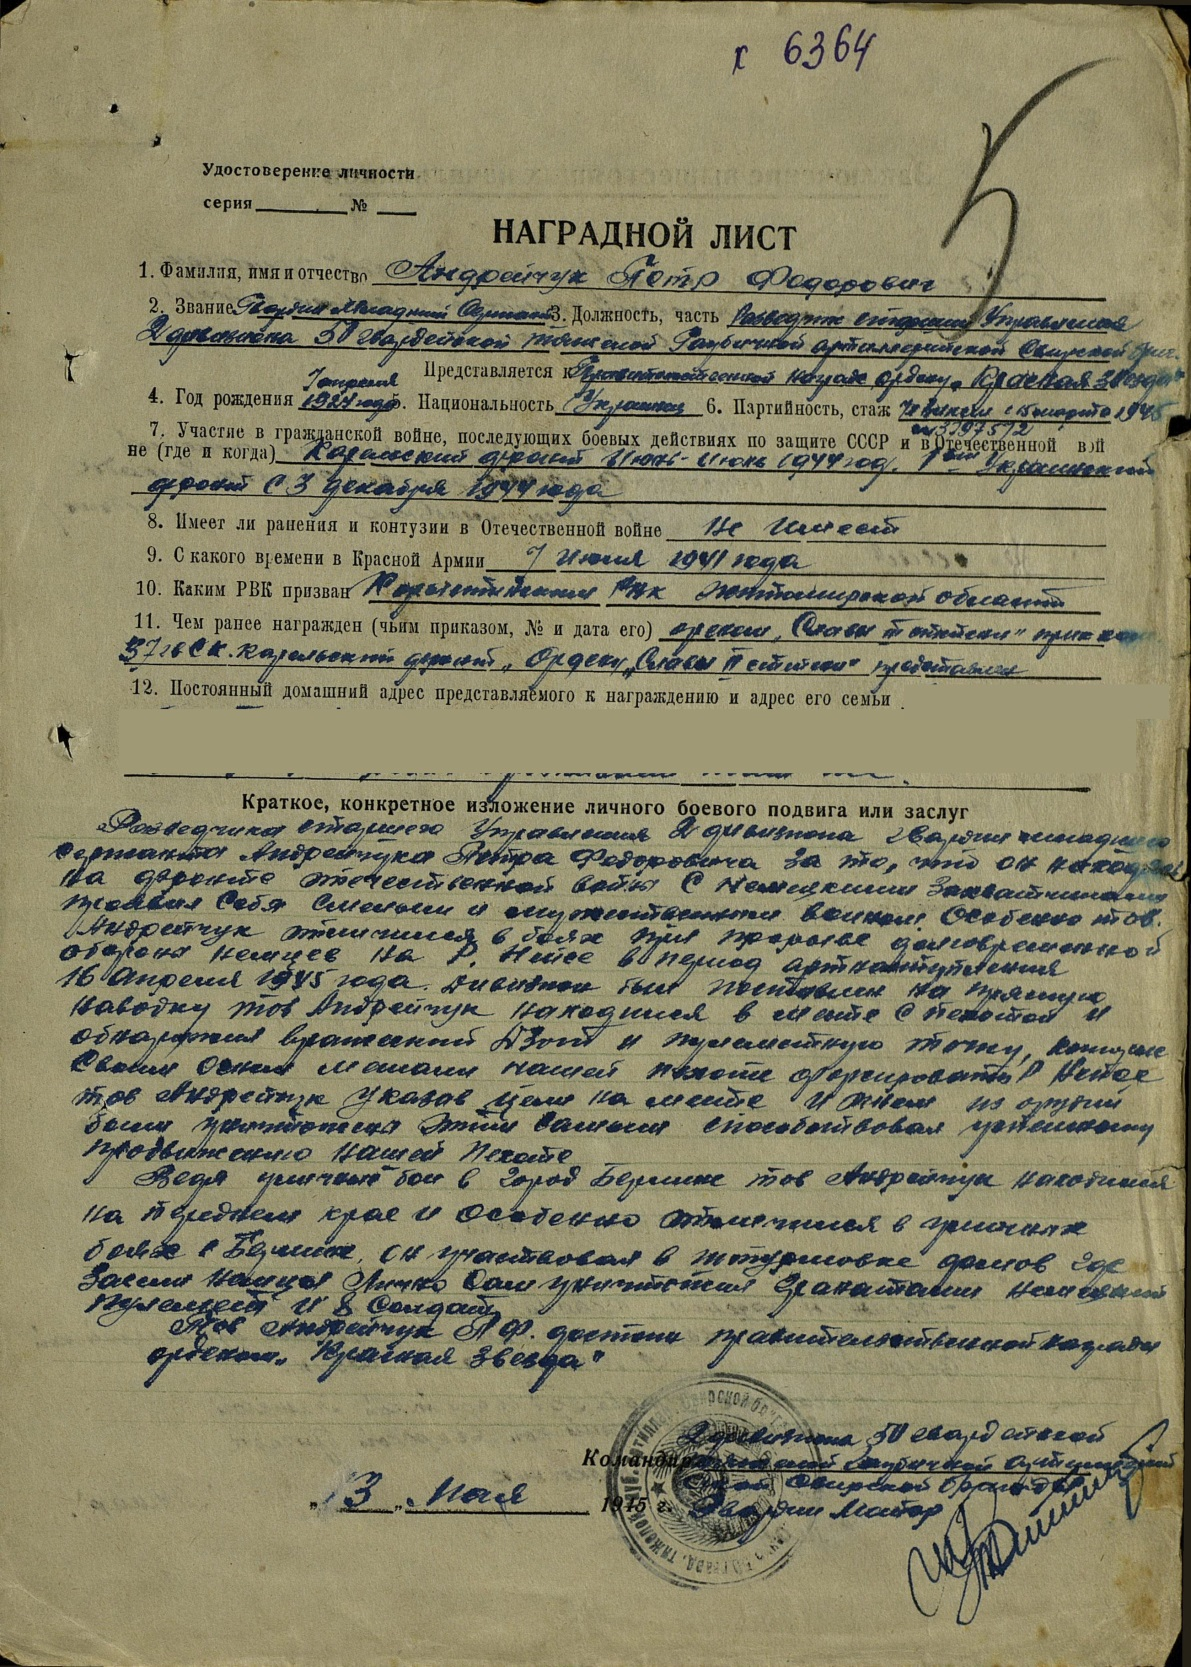 х 6364
5
Удостоверение личности
серия № 
НАГРАДНОЙ ЛИСТ
1. Фамилия, имя и отчество Андрейчук Петр Федорович
2. Звание Гвардии Младший Сержант 3. Должность, часть Разведчик старший Управления
2 дивизиона 50 гвардейской тяжелой Гаубичной артиллерийской Свирской бриг.
Представляется к Правительственной награде ордену „Красная Звезда"
4. Год рождения 7 апреля 1924 года 5. Национальность Украинец 6. Партийность, стаж чл ВКП(б) с 1945
7. Участие в гражданской войне, последующих боевых действиях по защите СССР и в Отечественной вой
не (где и когда) Карельский фронт Июнь-Июль 1944 год. 1 Украинский
фронт с 3 декабря 1944 года
8. Имеет ли ранения и контузии в Отечественной войне не имеет
9. С какого времени в Красной Армии 7 Июля 1941 года
10. Каким РВК призван РВК Житомирской области
11. Чем ранее награжден (чьим приказом, № и дата его) орденом „Славы III степени" приказ
37 гв СК. Карельский фронт, Ордену „Славы II степени" представлен
12. Постоянный домашний адрес представляемого к награждению и адрес его семьи
Краткое, конкретное изложение личного боевого подвига или заслуг
Разведчика старшего Управления 2 дивизиона гвардии младшего
Сержанта Андрейчука Петра Федоровича За то, что он находясь
на фронте отечественной войны с Немецкими Захватчиками
проявил Себя Смелым и мужественным воином. Особенно тов.
Андрейчук отличился в боях при прорыве долговременной
обороны немцев на р. Нейсе в период артнаступления
16 апреля 1945 года. Дивизион был поставлен на прямую
наводку тов Андрейчук находился в месте с пехотой и
обнаружил вражеский ДЗОТ и пулеметную точку, которые
Своим Огнем мешали нашей пехоте форсировать р Нейсе
тов Андрейчук указав цели на месте и огнем из орудий
были уничтожены этим самым способствовал успешному
продвижению нашей пехоте
Ведя уличный бои в город Берлине тов Андрейчук находился
на переднем крае и особенно отличился в уличных
боях в Берлине, он участвовал в штурмовке домов где
засели немцы Лично Сам уничтожил гранатами немецкий
пулемет и 8 Солдат
Тов Андрейчук П Ф. достоин правительственной награды
орденом „Красная Звезда"
2 дивизиона 50 гвардейской
Командир тяжелой гаубичной артиллерийской
Свирской бригады
„13" Мая 1945 г. Гвардии Майор